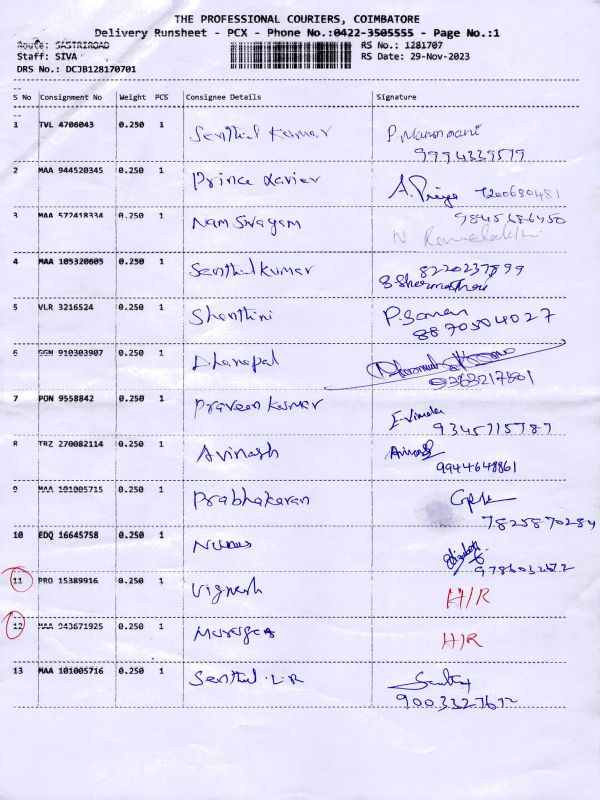 THE PROFESSIONAL COURIERS, COIMBATORE
Delivery Runsheet - PCX - Phone No.:0422-3505555 - Page No.:1
Route: SASTRIROAD RS No.: 1281707
Staff: SIVA RS Date: 29-Nov-2023
DRS No.: DCJB128170701
S No Consignment No Weight PCS Consignee Details Signature
1 TVL 4706043 0.250 1 Senthil Kumar P. Manonmani
9994339579
2 MAA 944520345 0.250 1 Prince Xavier A. Priya 7200680481
3 MAA 572418334 0.250 1 Nam Sivayam
4 MAA 105320605 0.250 1 Senthil kumar 8220237899
5 VLR 3216524 0.250 1 Shanthini
8870504027
6 910303907 0.250 1 Dhanapal
7 PON 9558842 0.250 1 Praveen kumar
9345715787
8 TRZ 270082114 0.250 1 Avinash Avinash
9944648861
9 MAA 101005715 0.250 1 Prabhakaran
7825870284
10 EDQ 16645758 0.250 1
11 PRO 15389916 0.250 1 Vignesh H/R
12 MAA 943671925 0.250 1 H/R
13 MAA 101005716 0.250 1 Senthil .L.R